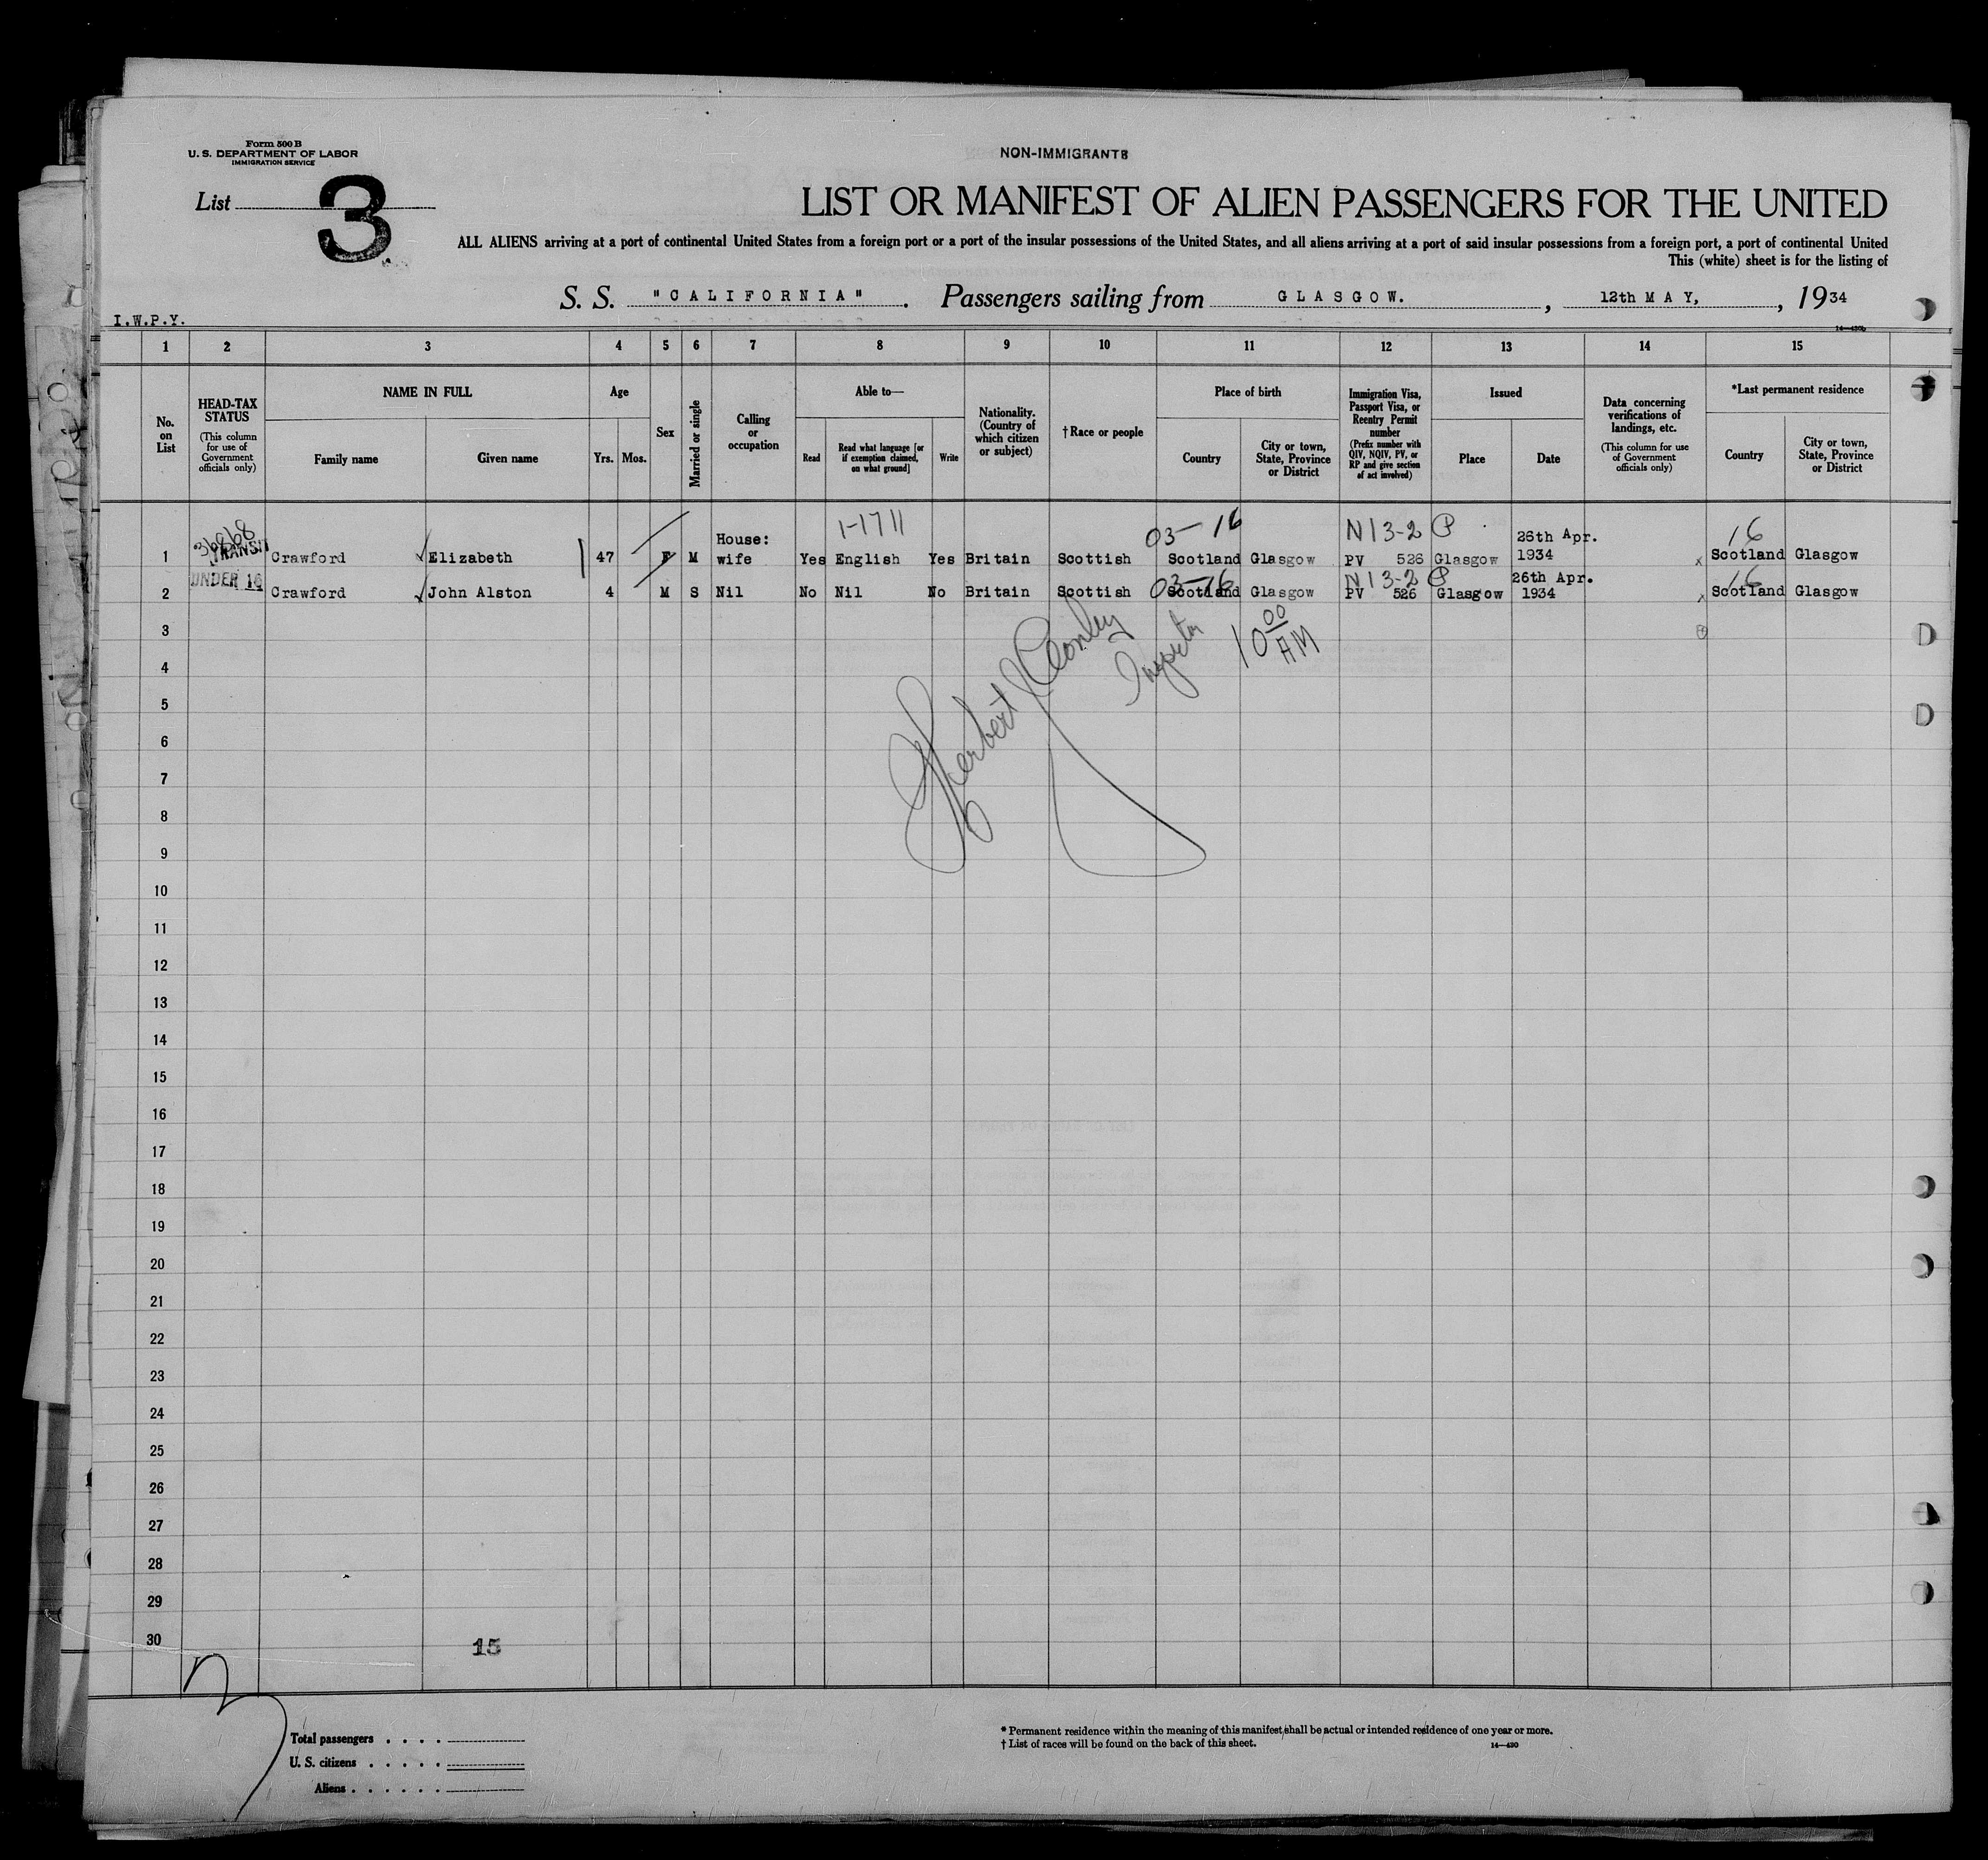 Form 500 B
U. S. DEPARTMENT OF LABOR
IMMIGRATION SERVICE
NON-IMMIGRANTS
List 3
LIST OR MANIFEST OF ALIEN PASSENGERS FOR THE UNITED
ALL ALIENS arriving at a port of continental United States from a foreign port or a port of the insular possessions of the United States, and all aliens arriving at a port of said insular possessions from a foreign port, a port of continental United
This (white) sheet is for the listing of
S. S. "CALIFORNIA". Passengers sailing from GLASGOW., 12th MAY, 1934
I.W.P.Y.
14-430b
1 2 3 4 5 6 7 8 9 10 11 12 13 14 15
No. on List
HEAD-TAX STATUS
(This column for use of Government officials only)
NAME IN FULL
Family name
Given name
Age
Yrs. Mos.
Sex
Married or single
Calling or occupation
Able to—
Read
Read what language [or if exemption claimed, on what ground]
Write
Nationality. (Country of which citizen or subject)
†Race or people
Place of birth
Country
City or town, State, Province or District
Immigration Visa, Passport Visa, or Reentry Permit number
(Prefix number with QIV, NQIV, PV, or RP and give section of act involved)
Issued
Place
Date
Data concerning verifications of landings, etc.
(This column for use of Government officials only)
*Last permanent residence
Country
City or town, State, Province or District
1-1711
36868 03-16 N13-2 P 16
1 TRANSIT Crawford Elizabeth 47 F M House: wife Yes English Yes Britain Scottish Scotland Glasgow PV 526 Glasgow 26th Apr. 1934 x Scotland Glasgow
03-16 N13-2 P 16
2 UNDER 16 Crawford John Alston 4 M S Nil No Nil No Britain Scottish Scotland Glasgow PV 526 Glasgow 26th Apr. 1934 x Scotland Glasgow
3
Herbert J Conley
Inspector
10 00 AM
4
5
6
7
8
9
10
11
12
13
14
15
16
17
18
19
20
21
22
23
24
25
26
27
28
29
30
15
Total passengers . . . .
U. S. citizens . . . . .
Aliens . . . . . .
* Permanent residence within the meaning of this manifest shall be actual or intended residence of one year or more.
† List of races will be found on the back of this sheet.
14-430